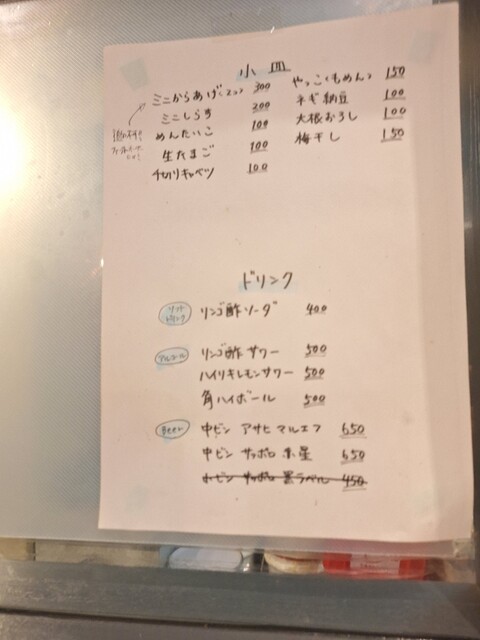 小皿
ミニからあげ(2コ) 300
ミニしらす 200
めんたいこ 100
生たまご 100
千切りキャベツ 100
やっこ(もめん) 150
ネギ納豆 100
大根おろし 100
梅干し 150
ドリンク
ソフトドリンク
リンゴ酢ソーダ 400
アルコール
リンゴ酢サワー 500
ハイリキレモンサワー 500
角ハイボール 500
Beer
中ビン アサヒ マルエフ 650
中ビン サッポロ 赤星 650
小ビン サッポロ 黒ラベル 450